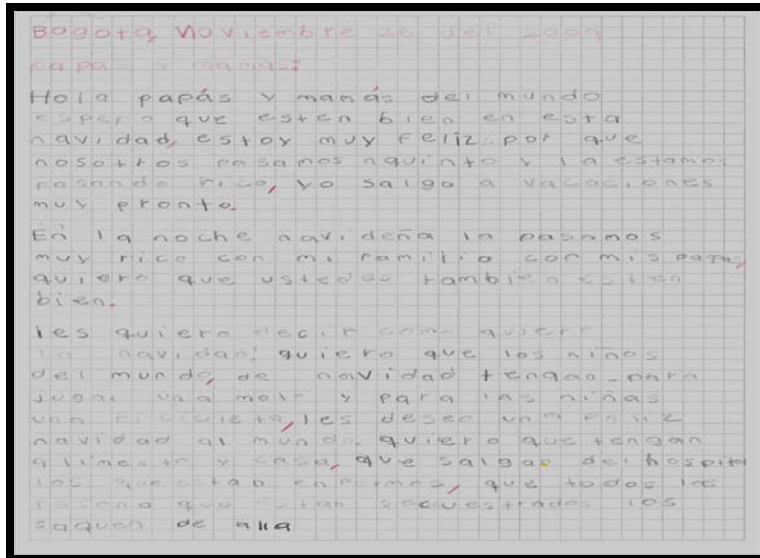 Bogotá, Noviembre 26 del 2009
papás y mamás:
Hola papás y mamás del mundo
espero que esten bien en esta
navidad, estoy muy feliz por que
nosotros pasamos aquinto y la estamos
pasando rico, yo salgo a vacaciones
muy pronto.
En la noche navideña la pasamos
muy rico con mi familia con mis papas,
quiero que ustedes tambien esten
bien.
les quiero decir como quiero
la navidad: quiero que los niños
del mundo, de navidad tengan para
jugar una moto y para las niñas
una bicicleta, les deseo una feliz
navidad al mundo. quiero que tengan
alimento y casa, que salgan del hospital
los que estan enfermos, que todos las
que estan secuestrados los
saquen de alla